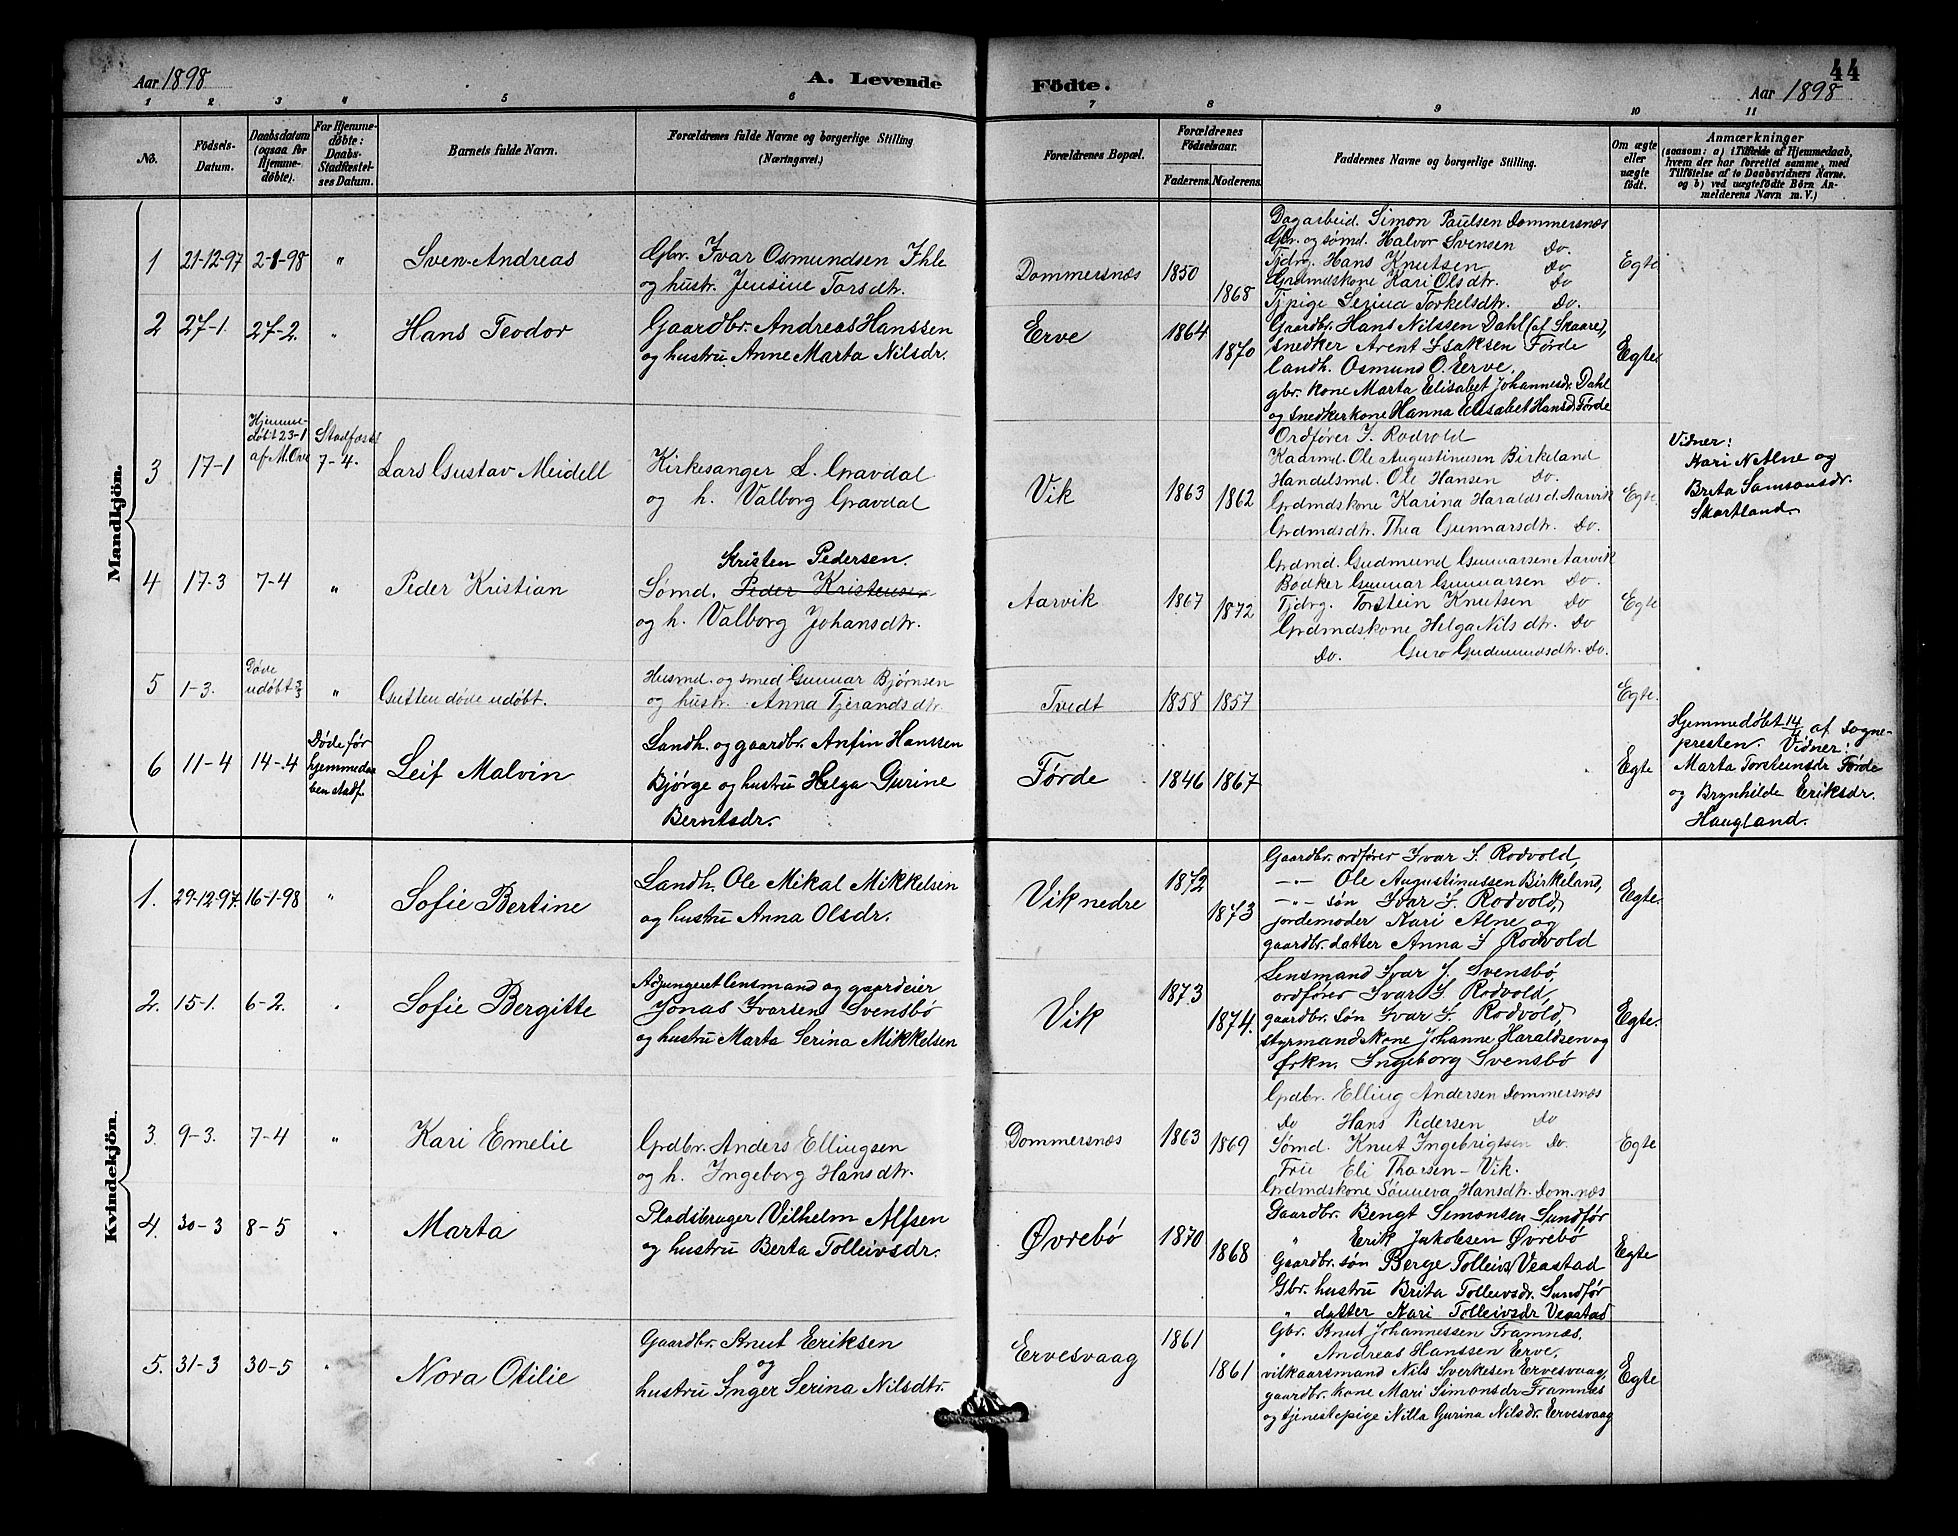 Aar 1898
A. Levende
Födte.
44
Aar 1898
1 2 3 4 5 6 7 8 9 10 11
No.
Födsels-Datum.
Daabsdatum (ogsaa for Hjemmedöbte).
For Hjemmedöbte: Daabs-Stadfæstelses Datum.
Barnets fulde Navn.
Forældrenes fulde Navne og borgerlige Stilling (Næringsvei.)
Forældrenes Bopæl.
Forældrenes Födselsaar.
Faderens. Moderens.
Faddernes Navne og borgerlige Stilling.
Om ægte eller uægte födt.
Anmærkninger
(saasom: a) i Tilfælde af Hjemmedaab,
hvem der har forrettet samme, med
Tilföielse af to Daabsvidners Navne.
og b) ved uægtefödte Börn An-
melderens Navn m. V.)
Mandkjön.
1 21-12-97 2-1-98 " Sven Andreas
Gbr. Ivar Osmundsen Ihle
og hustr. Jensine Torsdtr.
Dommersnæs 1850 1868
Dagarbeid. Simon Paulsen Dommersnæs
Gbr. og sømd. Halvor Svensen Do.
Tjdrg. Hans Knutsen Do
Grdmdskone Kari Olsdtr. Do
Tjpige Serina Torkelsdtr. Do.
Egte
2 27-1. 27-2. " Hans Teodor
Gaardbr. Andreas Hanssen
og hustru Anne Marta Nilsdr.
Erve 1864 1870
Gaardbr. Hans Nilssen Dahl (af Skaare),
snedker Arent Isaksen Førde
landh. Osmund O. Erve,
gbr. kone Marta Elisabet Johannesdr. Dahl
og snedkerkone Hanna Elisabet Hansd. Førde
Egte
3 17-1 Hjemme-
døbt 23-1
af M. Ove
Stadfæst
7-4.
Lars Gustav Meidell
Kirkesanger L. Gravdal
og h. Valborg Gravdal
Vik 1863 1862
Ordfører I. Rodvold
Kaarmd. Ole Augustinusen Birkeland
Handelsmd. Ole Hansen Do.
Grdmdskone Karina Haraldsd. Aarvik
Grdmdsdtr. Thea Gunnarsdtr. Do.
Egte
Vidner:
Kari N Alne og
Brita Samsonsdr.
Skartland.
4 17-3 7-4 " Peder Kristian
Kristen Pedersen.
Sømd. Peder Kristensen
og h. Valborg Johansdtr.
Aarvik 1867 1872
Grdmd. Gudmund Gunnarsen Aarvik
Bødker Gunnar Gunnarsen Do.
Tjdrg. Torstein Knutsen Do
Grdmdskone Helga Nilsdtr. Do
Do. Guro Gudmundsdtr. Do.
Egte
5 1-3. Døde
udøbt 3/3
" Gutten døde udøbt.
Husmd. og smed Gunnar Bjørnsen
og hustr. Anna Tjerandsdtr.
Tvedt 1858 1857
Egte.
6 11-4 14-4 Døde før
hjemmedaa
ben stadf.
Leif Malvin
Landh. og gaardbr. Anfin Hanssen
Bjørge og hustru Helga Gurine
Berntsdr.
Førde 1846 1867
Egte
Hjemmedøbt 14/4 af Sogne-
presten. Vidner:
Marta Torsteinsdr Førde
og Brynhilde Eriksdr.
Haugland.
Kvindekjön.
1. 29-12-97. 16-1-98 " Sofie Bertine
Landh. Ole Mikal Mikkelsen
og hustru Anna Olsdr.
Vik nedre 1872 1873
Gaardbr. ordfører Ivar I. Rodvold,
-"- Ole Augustinussen Birkeland,
-"- søn Ivar I. Rodvold,
jordemoder Kari Alne og
gaardbr. datter Anna I Rodvold
Egte.
2. 15-1. 6-2. " Sofie Bergitte
Adjungeret lensmand og gaardeier
Jonas Ivarsen Svensbø
og hustru Marta Serina Mikkelsen
Vik 1873 1874.
Lensmand Ivar J. Svensbø,
ordfører Ivar I. Rodvold,
gaardbr. søn Ivar I. Rodvold,
styrmandskone Johanne Haraldsen og
frkn. Ingeborg Svensbø
Egte.
3. 9-3. 7-4 " Kari Emelie
Grdbr. Anders Ellingsen
og h. Ingeborg Hansdtr.
Dommersnæs 1863 1869
Grdbr. Elling Andersen Dommersnæs
Do Hans Pedersen Do
Sømd. Knut Ingebrigtsen Do.
Frue Eli Thorsen - Vik.
Grdmdskone Sønneva Hansdtr. Dom.næs
Egte
4. 30-3 8-5 " Marta
Pladsbruger Vilhelm Alfsen
og hustru Berta Tolleivsdr.
Øvrebø 1870 1868
Gaardbr. Bengt Simonsen Sundfør
" Erik Jakobsen Øvrebø
Gaardbr. søn Berge Tolleivs Veastad
Gbr. hustru Brita Tolleivsdr. Sundfør
" datter Kari Tolleivsdr Veastad
Egte
5. 31-3 30-5 " Nora Otilie
Gaardbr. Knut Eriksen
og
hustru Inger Serina Nilsdtr.
Ervesvaag 1861 1861
Gbr. Knut Johannessen Framnæs,
" Andreas Hanssen Erve,
vilkaarsmand Nils Sverkesen Ervesvaag,
gaardbr. kone Mari Simonsdr Framnæs
og tjenestepige Nilla Gurina Nilsdr. Ervesvaag
Egte